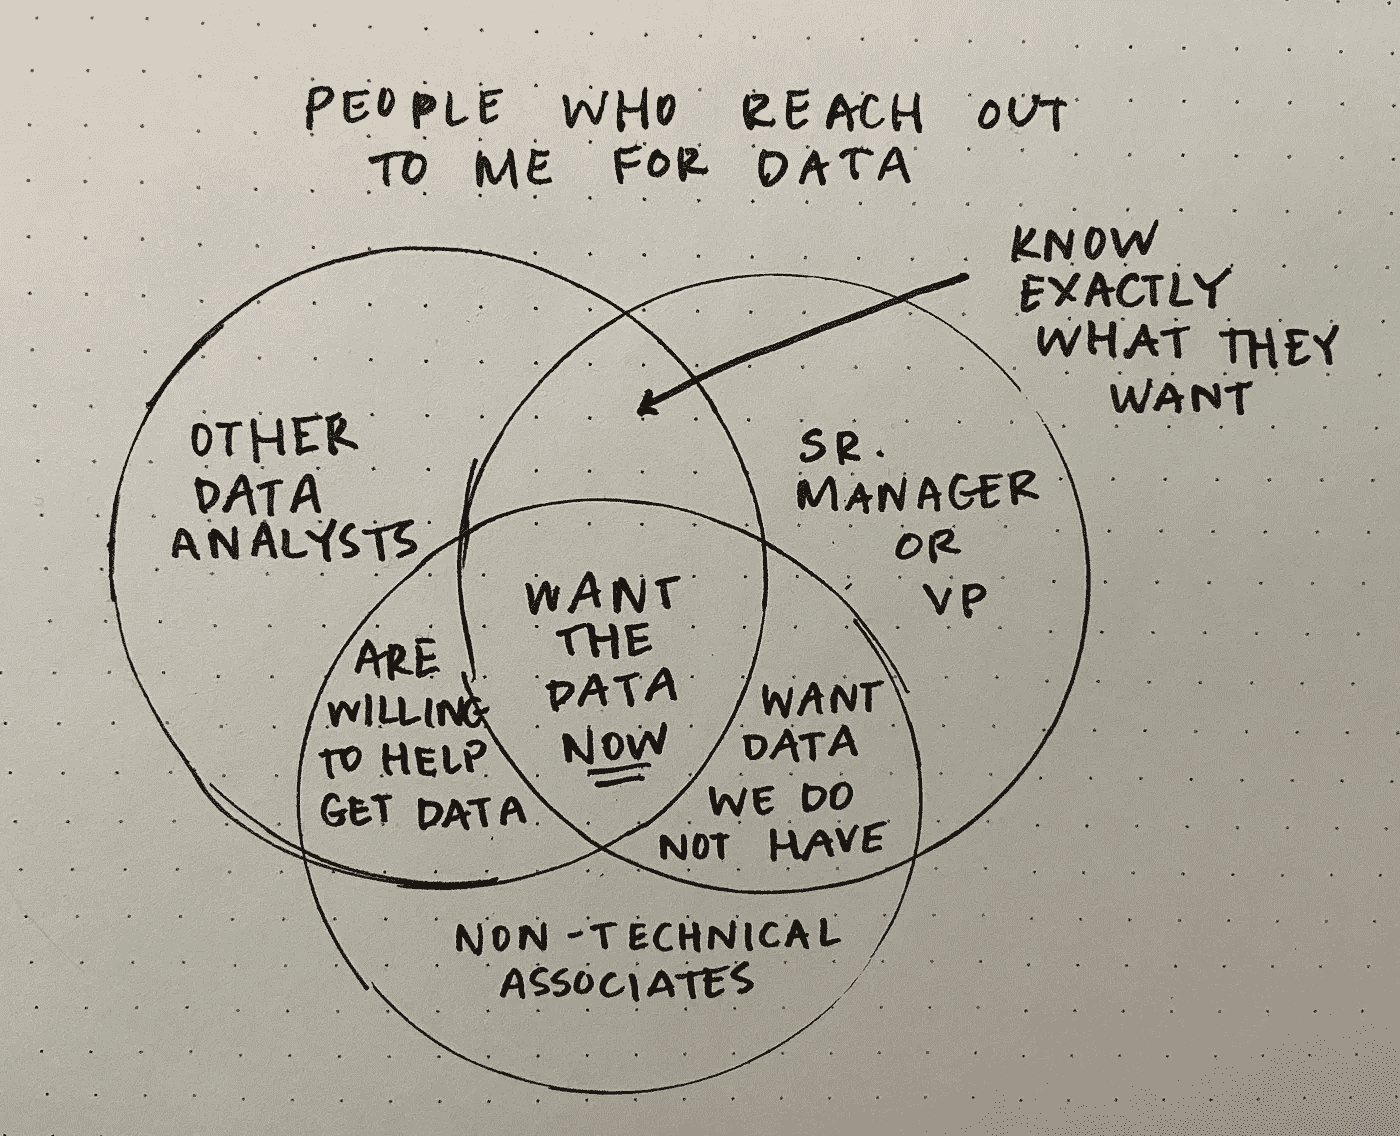 PEOPLE WHO REACH OUT
TO ME FOR DATA
KNOW
EXACTLY
WHAT THEY
WANT
OTHER
DATA
ANALYSTS
SR.
MANAGER
OR
VP
WANT
THE
DATA
NOW
ARE
WILLING
TO HELP
GET DATA
WANT
DATA
WE DO
NOT HAVE
NON-TECHNICAL
ASSOCIATES